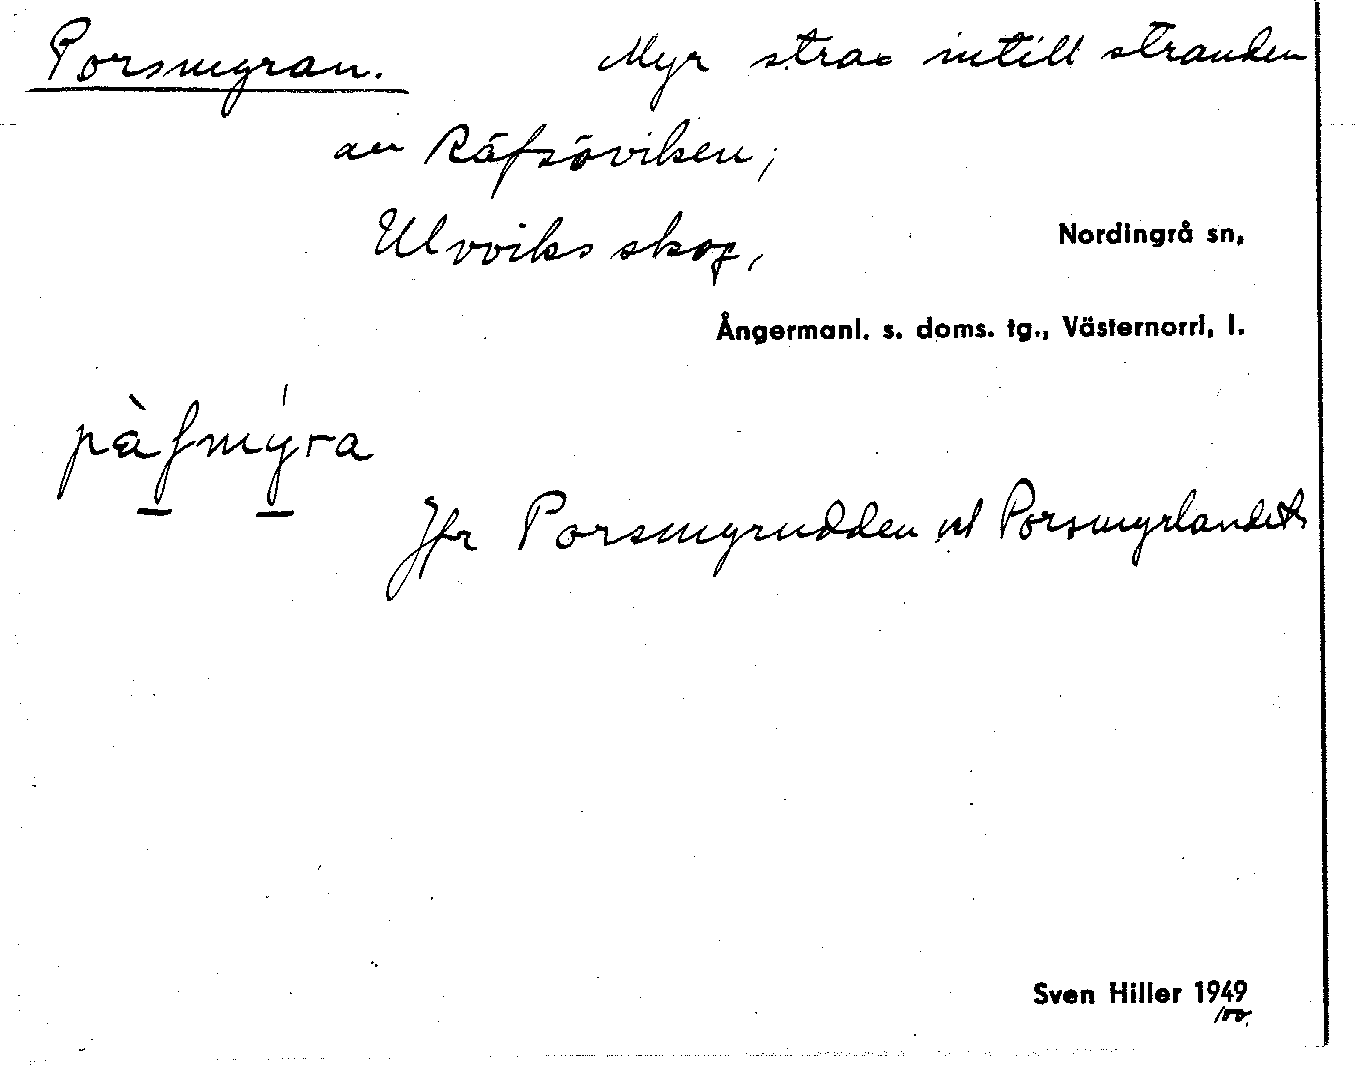 Porsmyran. Myr strax intill stranden
av Räfsöviken;
Ulvviks skog,
Nordingrå sn,
Ångermanl. s. doms. tg., Västernorrl. l.
pàʃmýra
Jfr Porsmyrudden vid Porsmyrlandet
Sven Hiller 1949